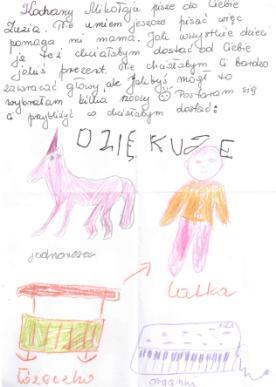 Kochany Mikołaju pisze do Ciebie
Zuzia. Nie umiem jeszcze pisać więc
pomaga mi mama. Jak wszystkie dzieci
ja też chciałabym dostać od Ciebie
jakiś prezent. Nie chciałabym Ci bardzo
zawracać głowy ale jakbyś mógł to
wybrałam kilka rzeczy Postaram się
Ci przybliżyć co chciałabym dostać:
DZIĘKUJĘ
jednorożca
lalka
łóżeczko
organki